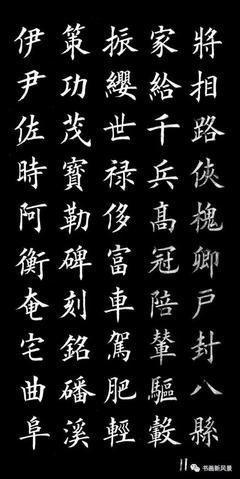 將相路俠槐卿戶封八縣
家給千兵高冠陪輦驅轂
振纓世禄侈富車駕肥輕
策功茂寶勒碑刻銘磻溪
伊尹佐時阿衡奄宅曲阜
书画新风景